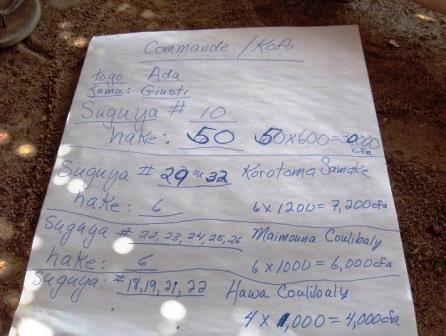 Commande / Kofo
togo Ada
Jamu: Giusti
Suguya # 10
hake: 50 50x600=30000 cfa
Suguya # 29 ou 32 Korotoma Samake
hake: 6 6x1200=7,200cfa
Suguya # 22, 23, 24, 25, 26 Maimouna Coulibaly
hake: 6 6x1000=6,000cfa
Suguya: #18,19,21,22 Hawa Coulibaly
4 x 1,000=4,000cfa